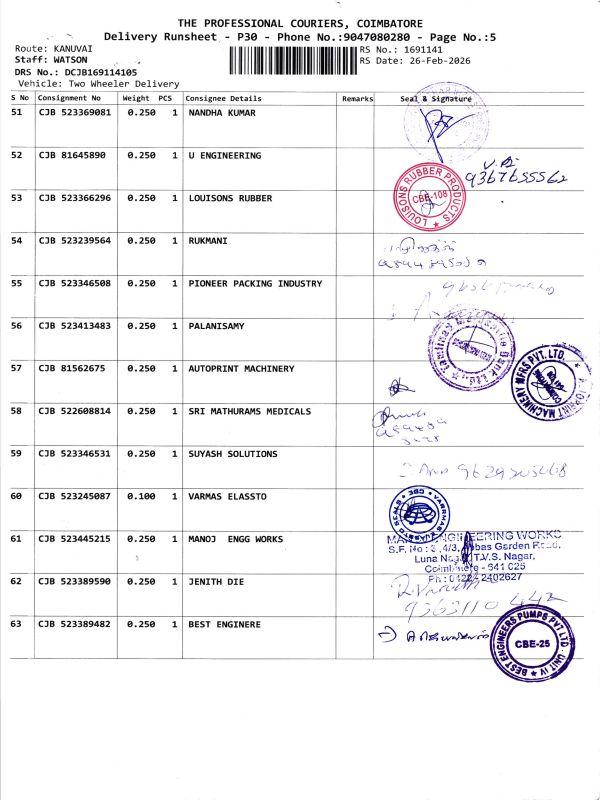 THE PROFESSIONAL COURIERS, COIMBATORE
Delivery Runsheet - P30 - Phone No.:9047080280 - Page No.:5
Route: KANUVAI
RS No.: 1691141
Staff: WATSON
RS Date: 26-Feb-2026
DRS No.: DCJB169114105
Vehicle: Two Wheeler Delivery
S No Consignment No Weight PCS Consignee Details Remarks Seal & Signature
51 CJB 523369081 0.250 1 NANDHA KUMAR
52 CJB 81645890 0.250 1 U ENGINEERING
9367655562
53 CJB 523366296 0.250 1 LOUISONS RUBBER
LOUISONS RUBBER PRODUCTS
CBE-108
54 CJB 523239564 0.250 1 RUKMANI
55 CJB 523346508 0.250 1 PIONEER PACKING INDUSTRY
56 CJB 523413483 0.250 1 PALANISAMY
Tamilnad Mercantile Bank Ltd.,
57 CJB 81562675 0.250 1 AUTOPRINT MACHINERY
AUTOPRINT MACHINERY MFRS PVT. LTD.
58 CJB 522608814 0.250 1 SRI MATHURAMS MEDICALS
59 CJB 523346531 0.250 1 SUYASH SOLUTIONS
60 CJB 523245087 0.100 1 VARMAS ELASSTO
61 CJB 523445215 0.250 1 MANOJ ENGG WORKS
ENGINEERING WORKS
Garden Road,
T.V.S. Nagar,
Coimbatore - 641 025
Ph : 0422 - 2402627
62 CJB 523389590 0.250 1 JENITH DIE
9363110 442
63 CJB 523389482 0.250 1 BEST ENGINERE
BEST ENGINEERS PUMPS PVT LTD - UNIT IV
CBE-25